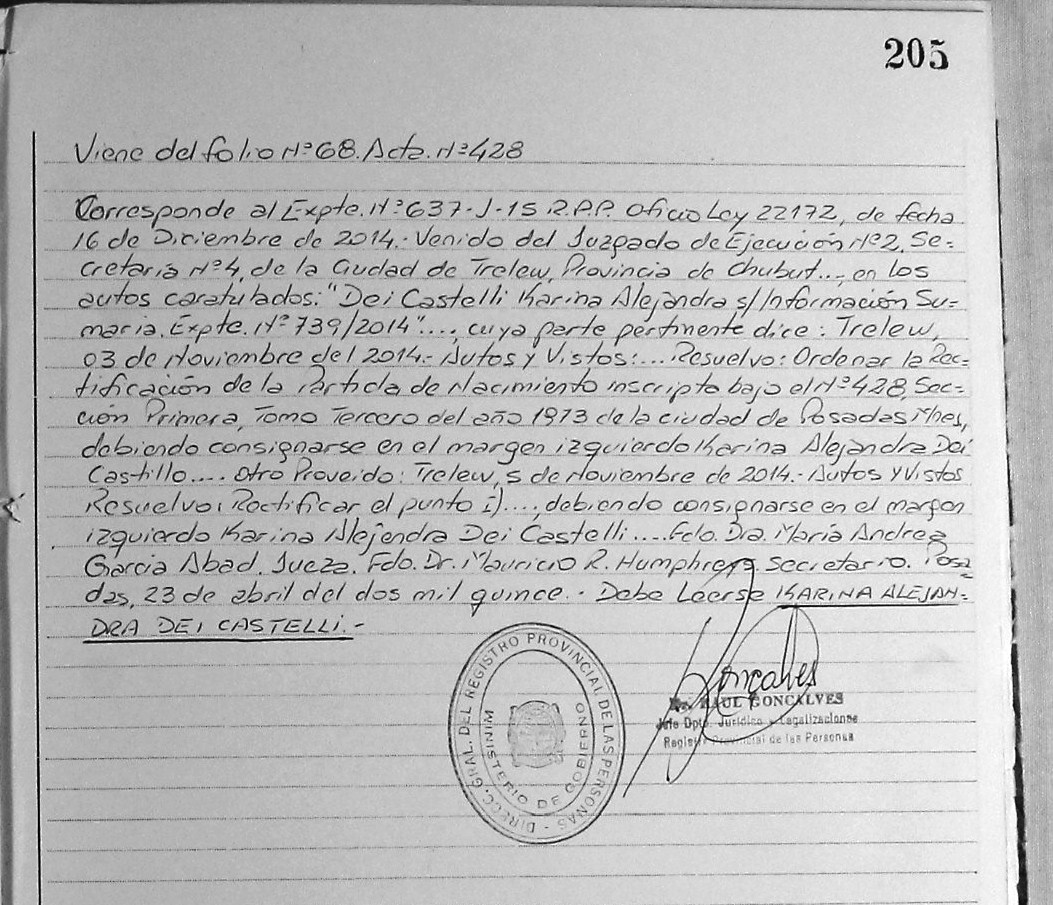 205
Viene del folio Nº68. Acta. Nº428
Corresponde al Expte. Nº637-J-15 R.P.P. Oficio Ley 22172, de fecha
16 de Diciembre de 2014.- Venido del Juzgado de Ejecución Nº2, Se=
cretaria Nº4, de la Ciudad de Trelew, Provincia de Chubut..., en los
autos caratulados: "Dei Castelli Karina Alejandra s/Información Su=
maria. Expte. Nº739/2014"...., cuya parte pertinente dice: Trelew,
03 de Noviembre del 2014.- Autos y Vistos:... Resuelvo: Ordenar la Rec=
tificación de la Partida de Nacimiento inscripto bajo el Nº428, Sec=
ción Primera, Tomo Tercero del año 1973 de la ciudad de Posadas Mnes,
debiendo consignarse en el margen izquierdo Karina Alejandra Dei
Castillo.... Otro Proveido: Trelew, 5 de Noviembre de 2014.- Autos y Vistos
Resuelvo: Rectificar el punto I)...., debiendo consignarse en el margen
izquierdo Karina Alejendra Dei Castelli....Fdo. Dra. María Andrea
Garcia Abad. Jueza. Fdo. Dr. Mauricio R. Humphreys. Secretario. Posa=
das, 23 de abril del dos mil quince.- Debe Leerse KARINA ALEJAN=
DRA DEI CASTELLI.-
DIRECC. GRAL. DEL REGISTRO PROVINCIAL DE LAS PERSONAS -
MINISTERIO DE GOBIERNO
Gonçalves
Dr. RAUL GONCALVES
Jefe Dpto. Jurídico y Legalizaciones
Registro Provincial de las Personas